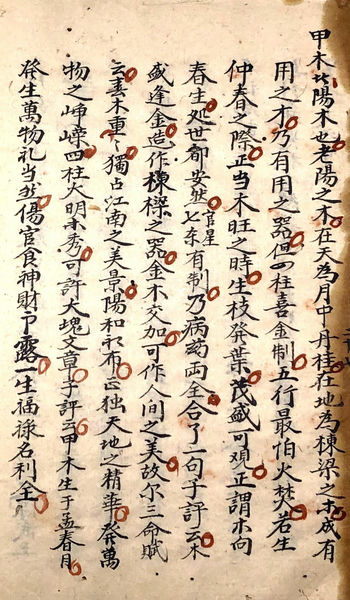 甲木者陽木也老陽之木在天為月中丹桂在地為棟梁之木成有
用之才乃有用之器但四柱喜金制五行最怕火焚若生
仲春之際正当木旺之時生枝發葉茂盛可观正謂木向
春生处世都安然官星七杀有制乃病葯両全合了一句子評云木
盛逢金造作棟樑之器金木交加可作人间之美故尔三命賦
云春木重々獨占江南之美景陽和布正独天地之精華發萬
物之峥嵘四柱火明木秀可許大塊文章子評云甲木生于孟春月
發生萬物礼当然傷官食神財卩露一生福祿名利全